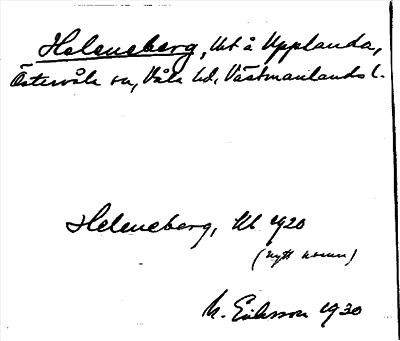 Heleneberg, lht å Upplanda,
Östervåla sn, Våla hd, Västmanlands l.
Heleneberg, lht 1920
(nytt namn)
M. Eriksson 1930